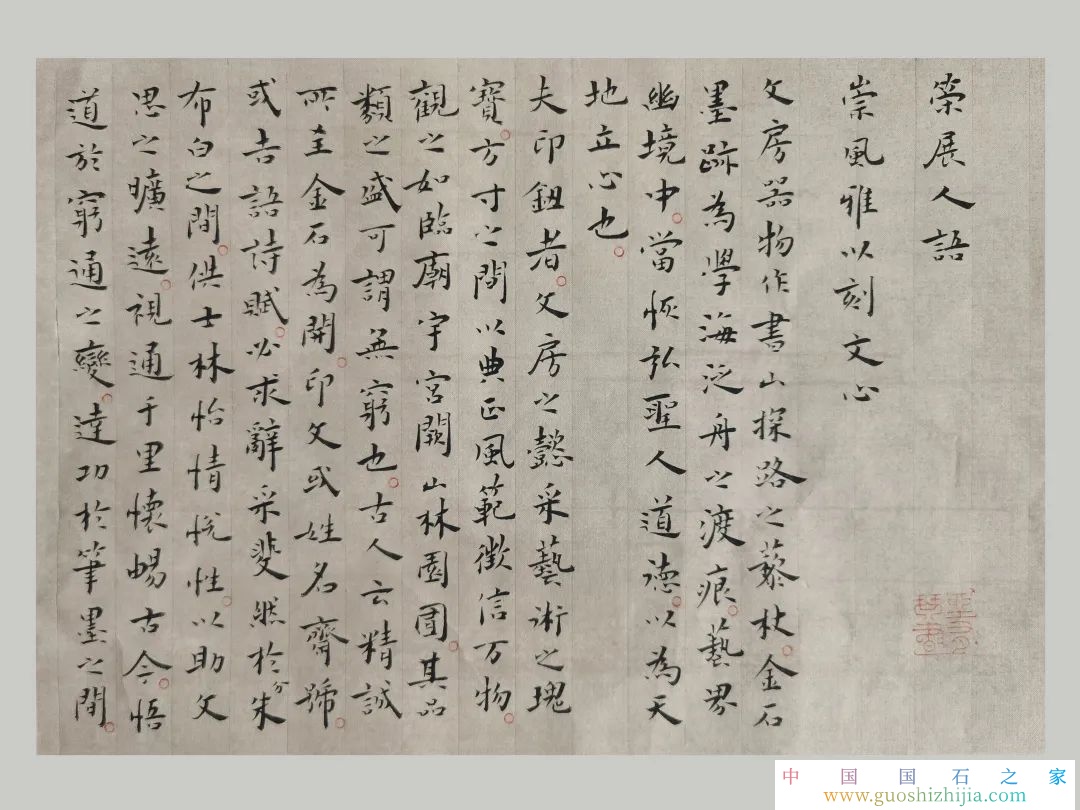 榮展人語
崇風雅以刻文心
文房器物作書山探路之藜杖。金石
墨跡為學海泛舟之渡痕。藝界
幽境中。當恢弘聖人道德。以為天
地立心也。
夫印鈕者。文房之懿采藝術之瑰
寶。方寸之間以典正風範徵信万物
觀之如臨廟宇宮闕山林園囿。其品
類之盛可謂無窮也。古人云精誠
所至金石為開。印文或姓名齋號。
或吉語詩賦。必求辭采斐然於分朱
布白之間。供士林怡情悅性。以助文
思之曠遠。視通千里懷暢古今。悟
道於窮通之變。達功於筆墨之間。
中国国石之家
www.guoshizhijia.com